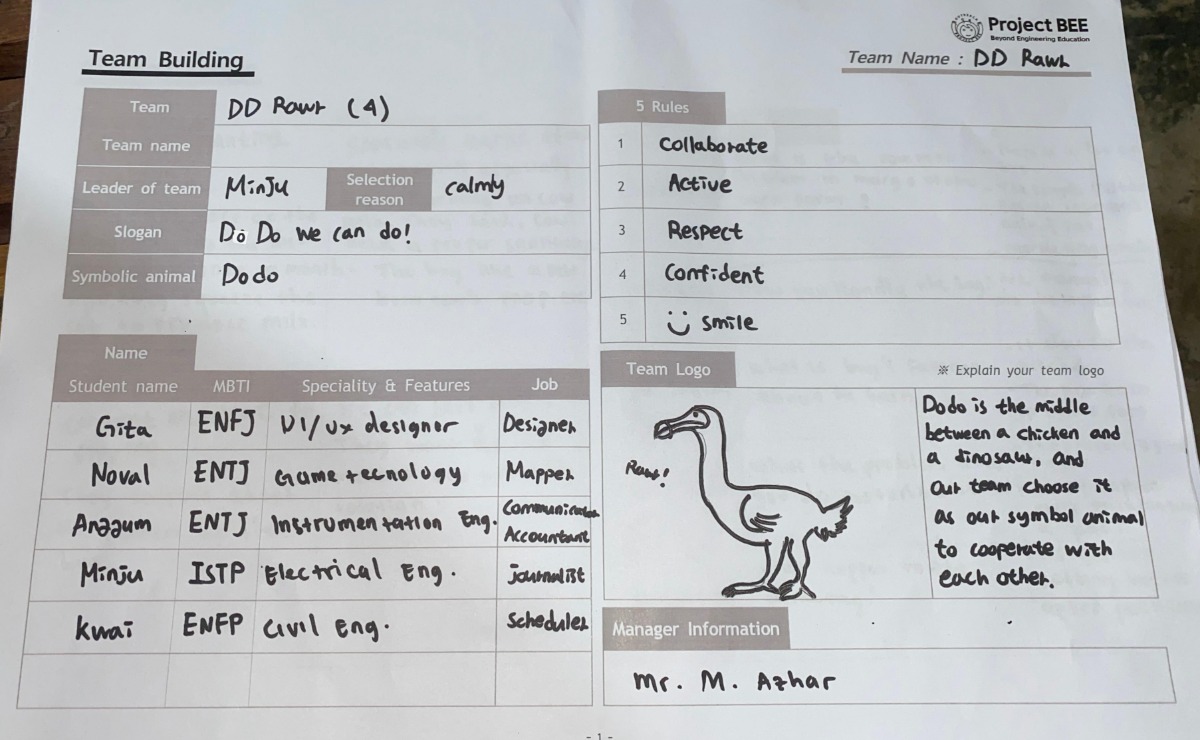 Project BEE
Beyond Engineering Education
Team Building
Team Name : DD Rawr
Team DD Rawr (4)
Team name
Leader of team Minju Selection reason calmly
Slogan Do Do we can do!
Symbolic animal Dodo
5 Rules
1 Collaborate
2 Active
3 Respect
4 Confident
5 smile
Name
Student name MBTI Speciality & Features Job
Gita ENFJ UI/UX designer Designer
Noval ENTJ Game tecnology Mapper
Anggum ENTJ Instrumentation Eng. Communicator
Accountant
Minju ISTP Electrical Eng. journalist
Kwai ENFP Civil Eng. Scheduler
Team Logo
※ Explain your team logo
Rawr!
Dodo is the middle
between a chicken and
a dinosaur, and
our team choose it
as our symbol animal
to cooperate with
each other.
Manager Information
Mr. M. Azhar
- 1 -